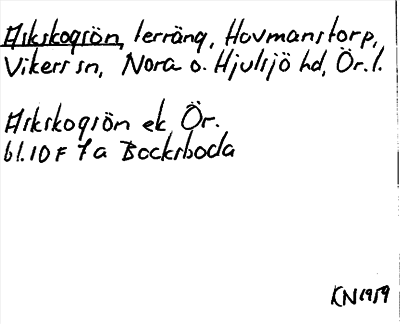 Askskogsön, terräng, Hovmanstorp,
Vikers sn, Nora o. Hjulsjö hd, Ör. l.
Askskogsön ek Ör.
bl. 10 F 7 a Bocksboda
KN 1959